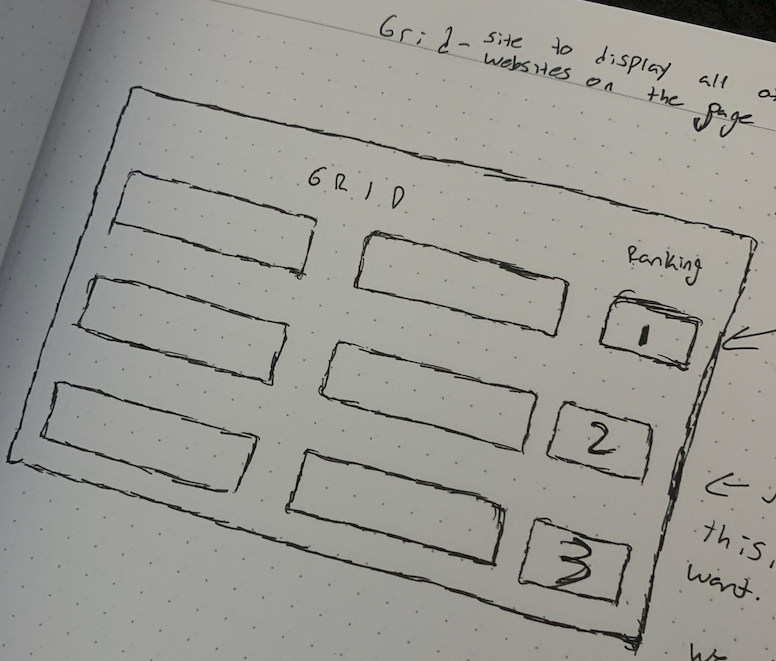 Grid - site to display all
websites on the page
GRID
Ranking
1
2
3
this,
want.